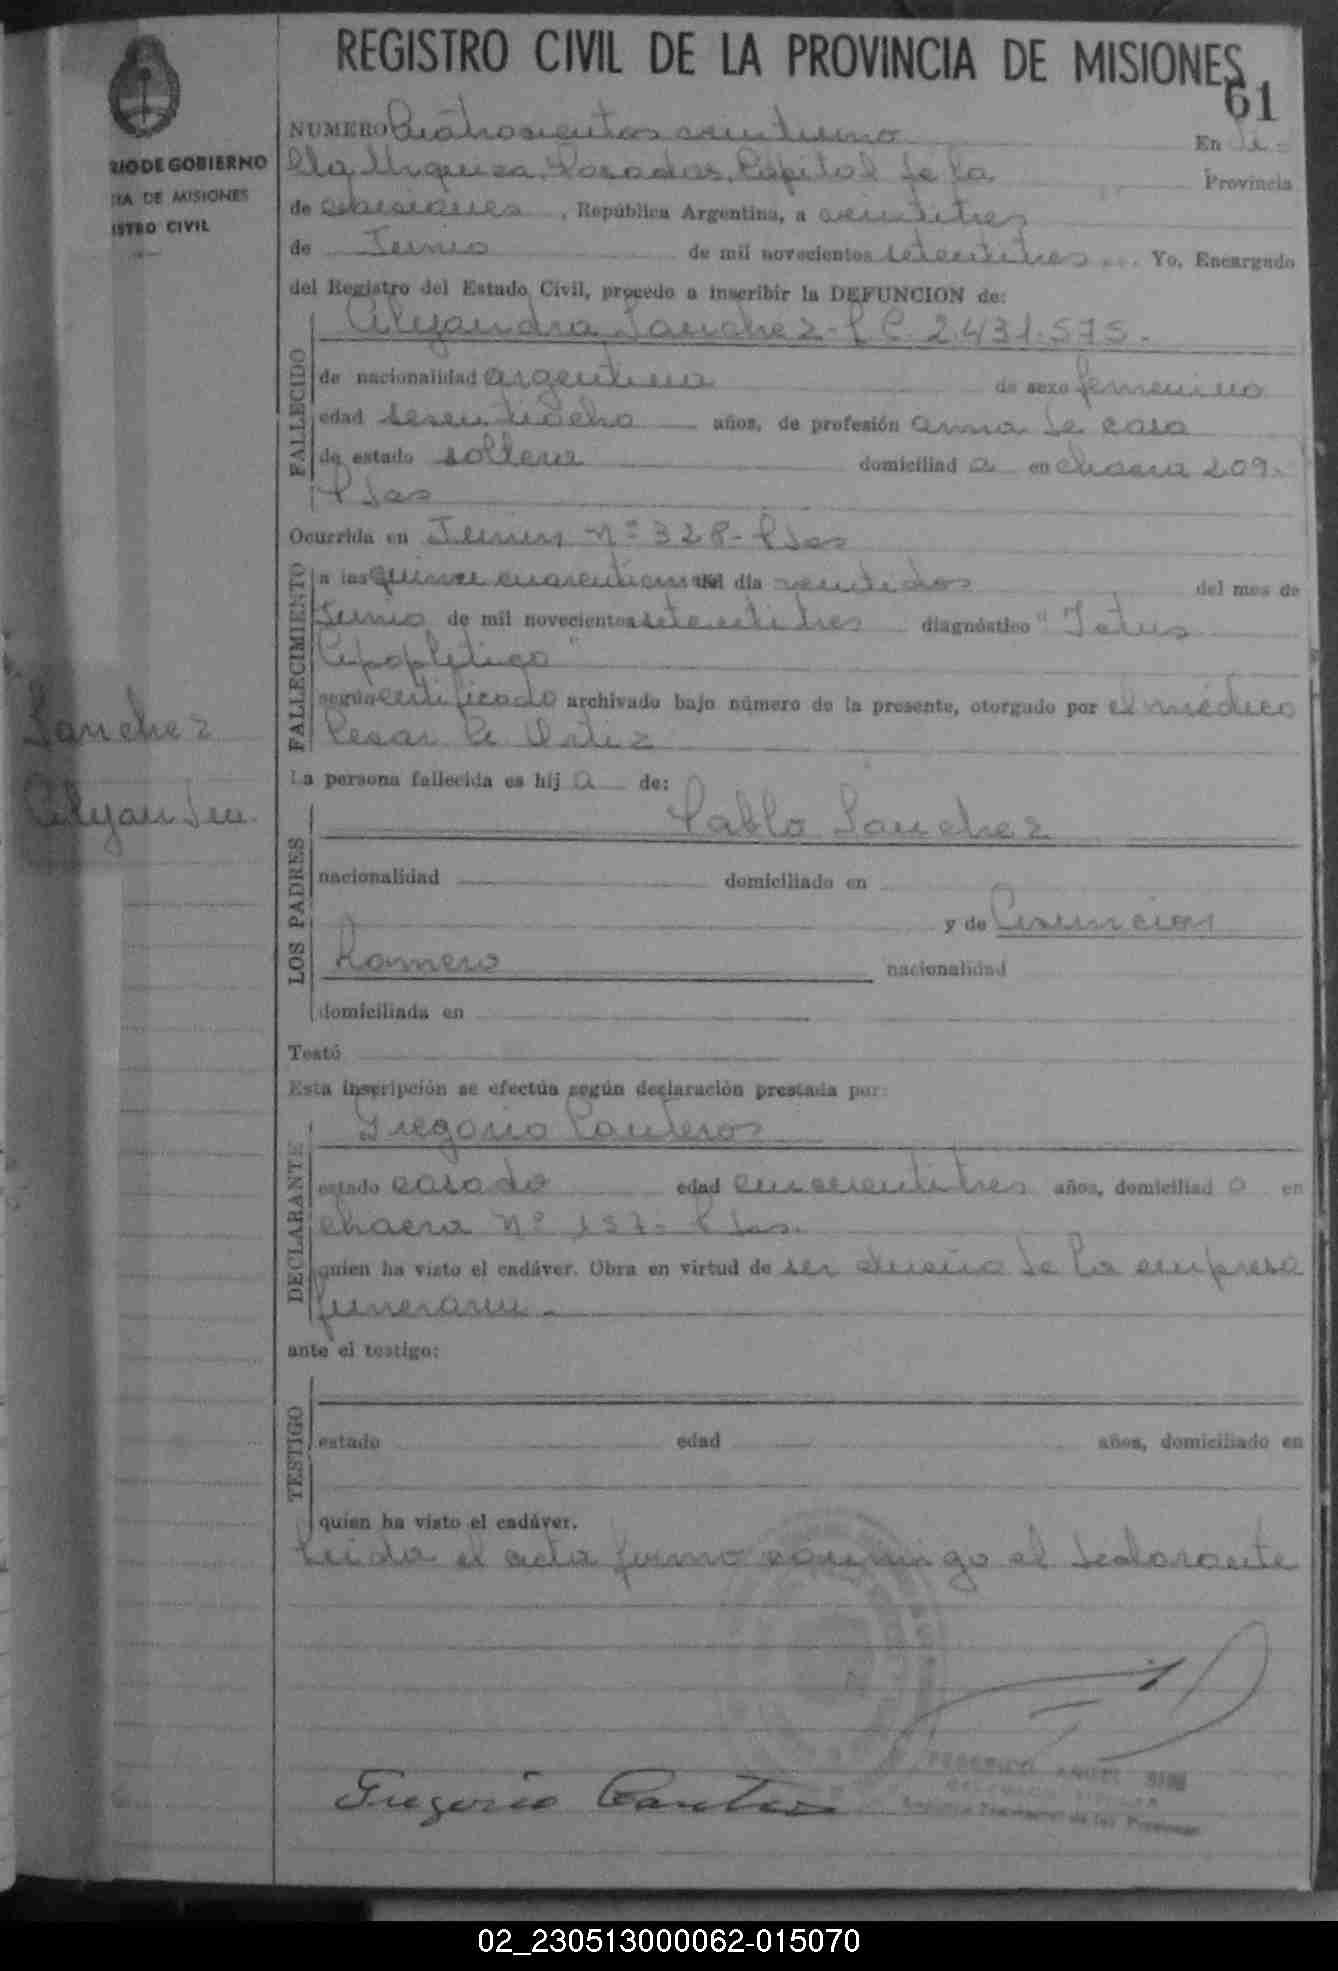 REGISTRO CIVIL DE LA PROVINCIA DE MISIONES
61
RIO DE GOBIERNO
IA DE MISIONES
ISTRO CIVIL
NUMERO Cuatrosientos veintiuno En Vi-
lla Urquiza, Posadas, Capital de la Provincia
de Misiones, República Argentina, a veintitres
de Junio de mil novecientos setentitres Yo, Encargado
del Registro del Estado Civil, procedo a inscribir la DEFUNCION de:
Alejandra Sanchez - L C. 2.431.575.-
FALLECIDO
de nacionalidad argentina de sexo femenino
edad sesentiocho años, de profesión ama de casa
de estado soltera domiciliad a en chacra 209.
Pdas
Ocurrida en Junin nº 328 - Pdas
FALLECIMIENTO
a las quince cuarenticinco del día veintidos del mes de
Junio de mil novecientos setentitres diagnóstico "Ictus
Apopletico"
según certificado archivado bajo número de la presente, otorgado por el médico
Cesar A. Ortiz
Sanchez
Alejandra.
La persona fallecida es hij a de:
Pablo Sanchez
LOS PADRES
nacionalidad domiciliado en
y de Asuncion
Romero nacionalidad
domiciliada en
Testó
Esta inscripción se efectúa según declaración prestada por:
Gregorio Canteros
DECLARANTE
estado casado edad cincuentitres años, domiciliad o en
chacra Nº 137- Pdas.
quien ha visto el cadáver. Obra en virtud de ser dueño de la empresa
funeraria.-
ante el testigo:
TESTIGO
estado edad años, domiciliado en
quien ha visto el cadáver.
Leida el acta firmo conmigo el declarante
Gregorio Canteros
FEDERICO ANGEL
Registro Provincial de las Personas
02_230513000062-015070